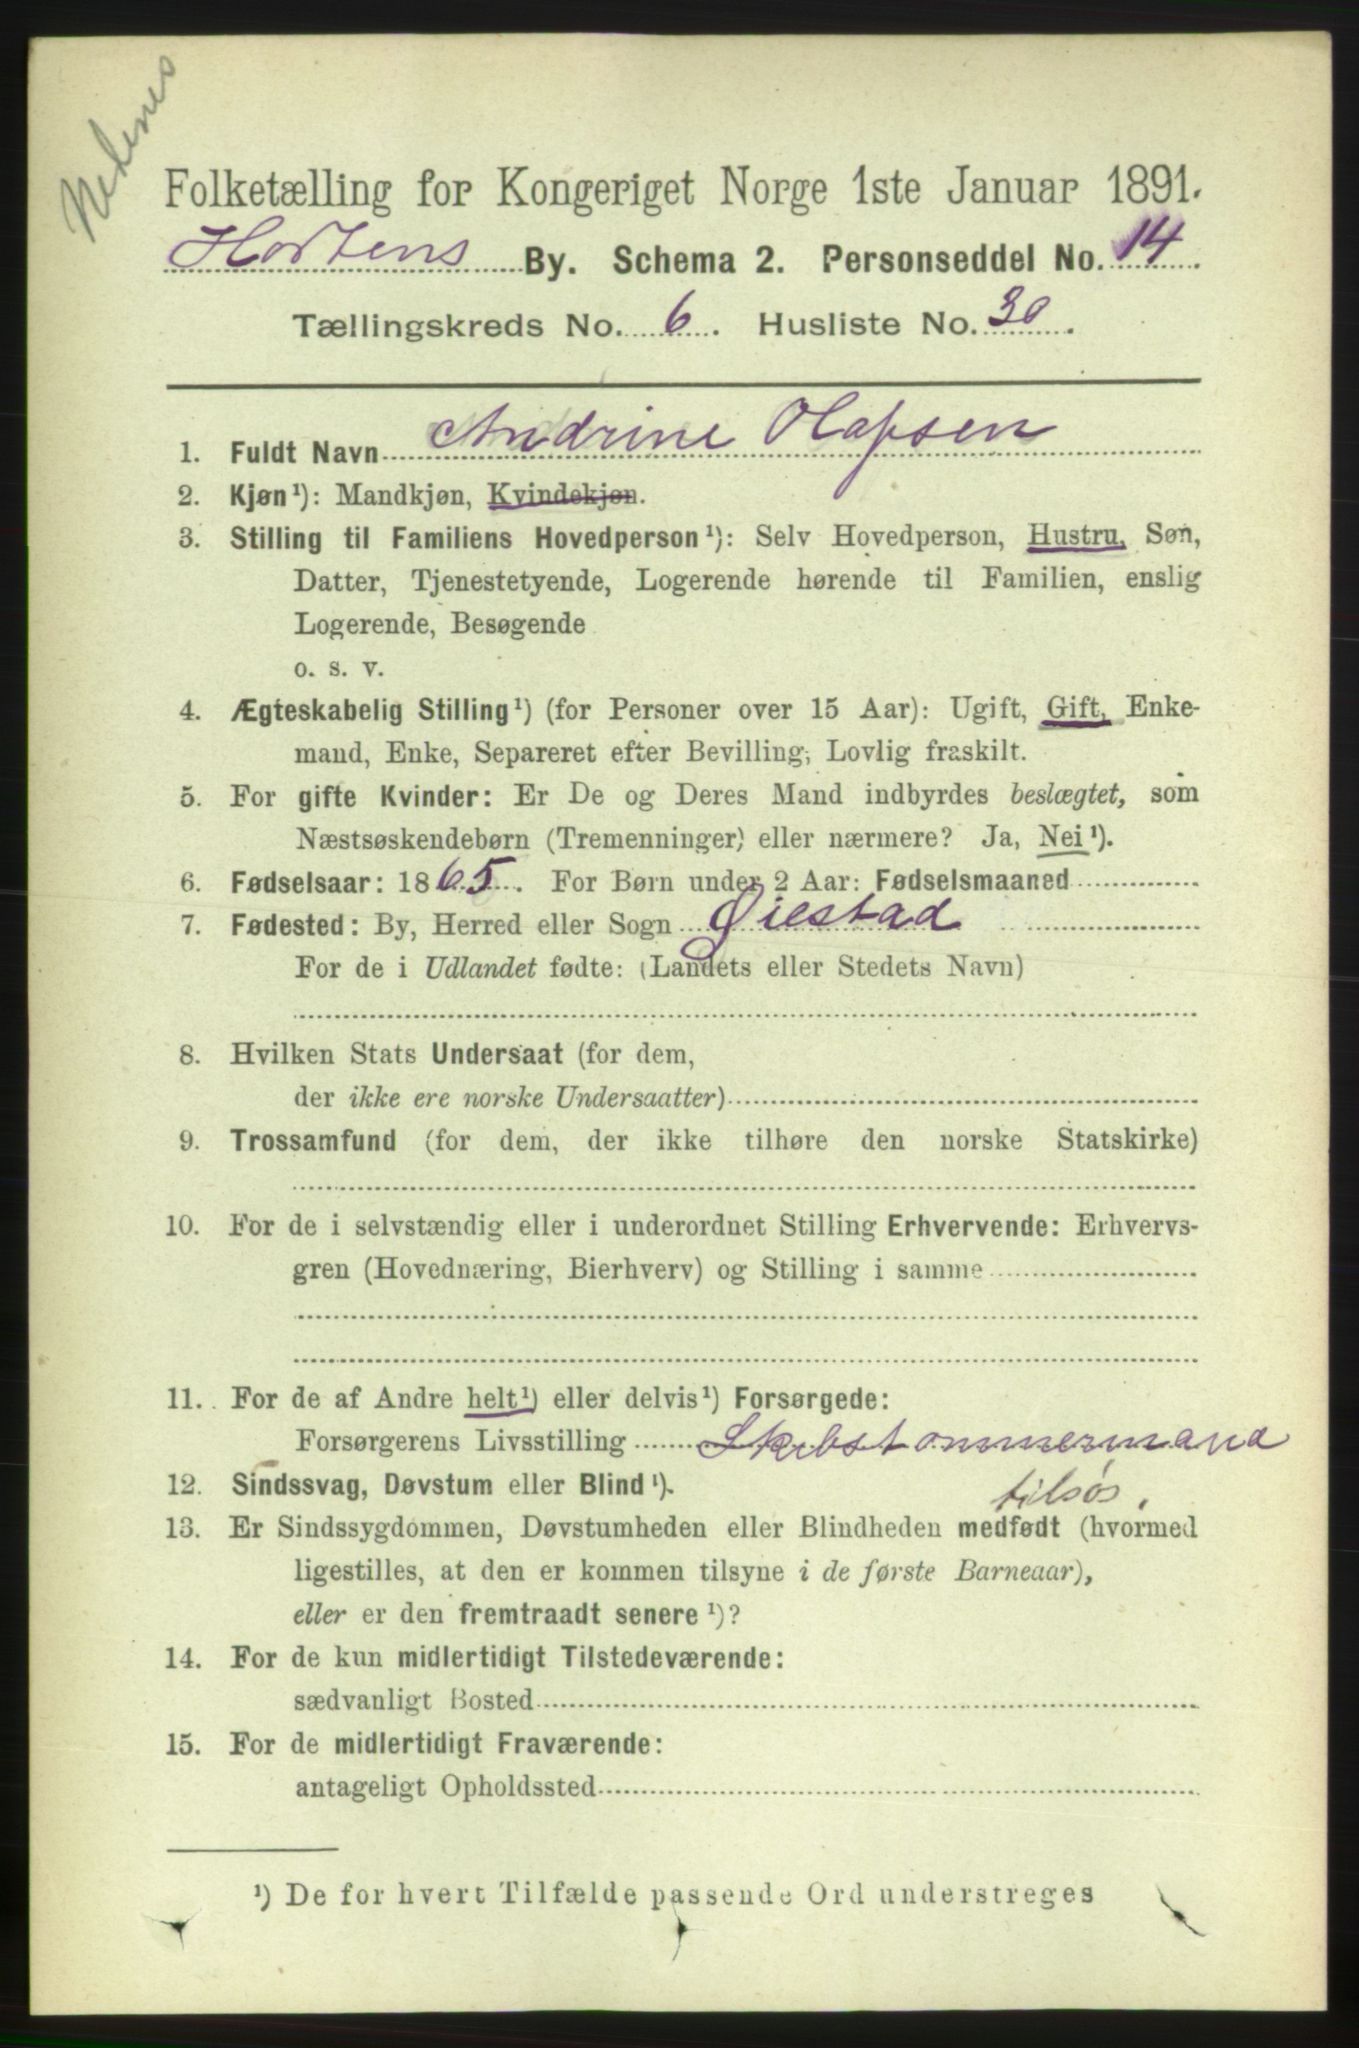 Nedenes
Folketælling for Kongeriget Norge 1ste Januar 1891.
Hortens By. Schema 2. Personseddel No. 14
Tællingskreds No. 6. Husliste No. 30.
1. Fuldt Navn Andrine Olafsen
2. Kjøn¹): Mandkjøn, Kvindekjøn.
3. Stilling til Familiens Hovedperson¹): Selv Hovedperson, Hustru, Søn,
Datter, Tjenestetyende, Logerende hørende til Familien, enslig
Logerende, Besøgende
o. s. v.
4. Ægteskabelig Stilling¹) (for Personer over 15 Aar): Ugift, Gift, Enke-
mand, Enke, Separeret efter Bevilling, Lovlig fraskilt.
5. For gifte Kvinder: Er De og Deres Mand indbyrdes beslægtet, som
Næstsøskendebørn (Tremenninger) eller nærmere? Ja, Nei¹).
6. Fødselsaar: 1865. For Børn under 2 Aar: Fødselsmaaned
7. Fødested: By, Herred eller Sogn Øiestad
For de i Udlandet fødte: (Landets eller Stedets Navn)
8. Hvilken Stats Undersaat (for dem,
der ikke ere norske Undersaatter)
9. Trossamfund (for dem, der ikke tilhøre den norske Statskirke)
10. For de i selvstændig eller i underordnet Stilling Erhvervende: Erhvervs-
gren (Hovednæring, Bierhverv) og Stilling i samme
11. For de af Andre helt¹) eller delvis¹) Forsørgede:
Forsørgerens Livsstilling Skibstømmermand
tilsøs.
12. Sindssvag, Døvstum eller Blind¹).
13. Er Sindssygdommen, Døvstumheden eller Blindheden medfødt (hvormed
ligestilles, at den er kommen tilsyne i de første Barneaar),
eller er den fremtraadt senere¹)?
14. For de kun midlertidigt Tilstedeværende:
sædvanligt Bosted
15. For de midlertidigt Fraværende:
antageligt Opholdssted
¹) De for hvert Tilfælde passende Ord understreges